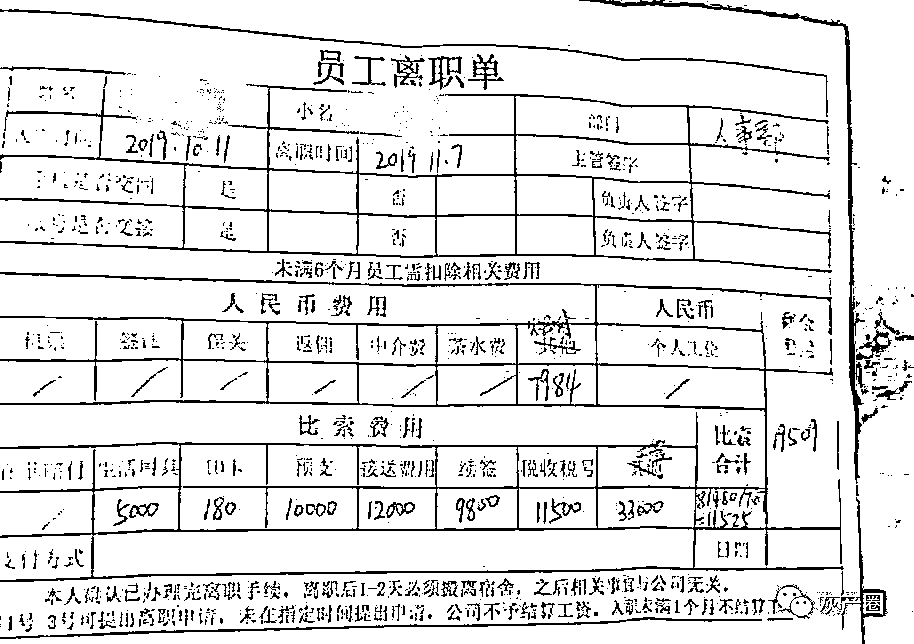 员工离职单
小名 部门 人事部
2019.10.11 离职时间 2019 11.7 主管签字
是 否 负责人签字
是否交接 是 否 负责人签字
未满6个月员工需扣除相关费用
人民币费用 人民币
机票 签证 保关 返佣 中介费 茶水费 其他 个人工位
/ / / / / / 7984 /
比索费用 比索合计
生活用具 印卡 预支 接送费用 续签 税收税号
/ 5000 180 10000 12000 9800 11500 33000
=11525
支付方式 日期
本人确认已办理完离职手续，离职后1-2天必须搬离宿舍，之后相关事宜与公司无关。
3号可提出离职申请，未在指定时间提出申请，公司不予结算工资。入职未满1个月不结算工
灰产圈